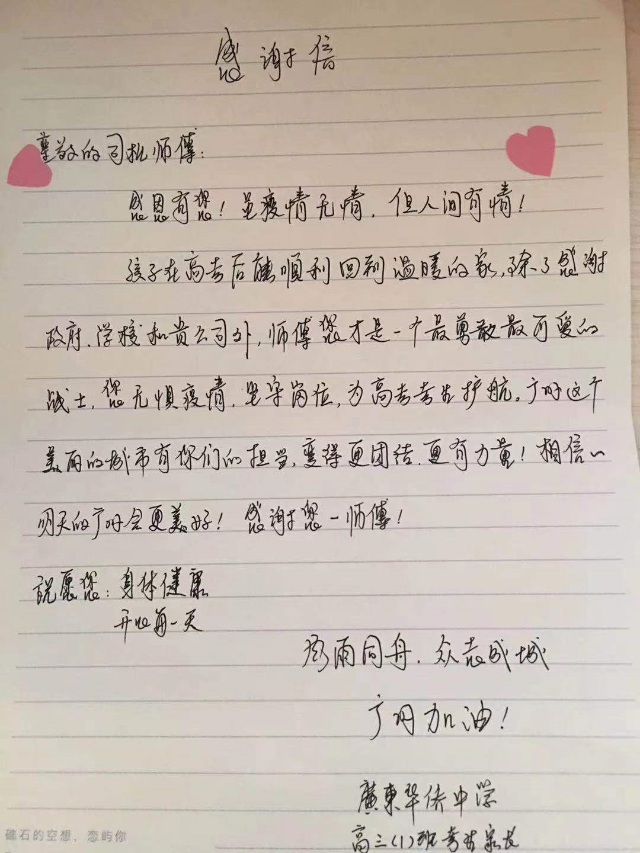 感谢信
尊敬的司机师傅:
感恩有您!虽疫情无情,但人间有情!
孩子在高考后能順利回到温暖的家,除了感谢
政府、学校和貴公司外,师傅您才是一个最勇敢最可爱的
战士,您无惧疫情,坚守岗位,为高考考生护航,广州这个
美丽的城市有你们的担当,变得更团结、更有力量!相信
明天的广州会更美好!感谢您-师傅!
祝愿您:身体健康
开心每一天
风雨同舟、众志成城
广州加油!
廣東华侨中学
高三(1)班考生家长
礁石的空想、恋屿你